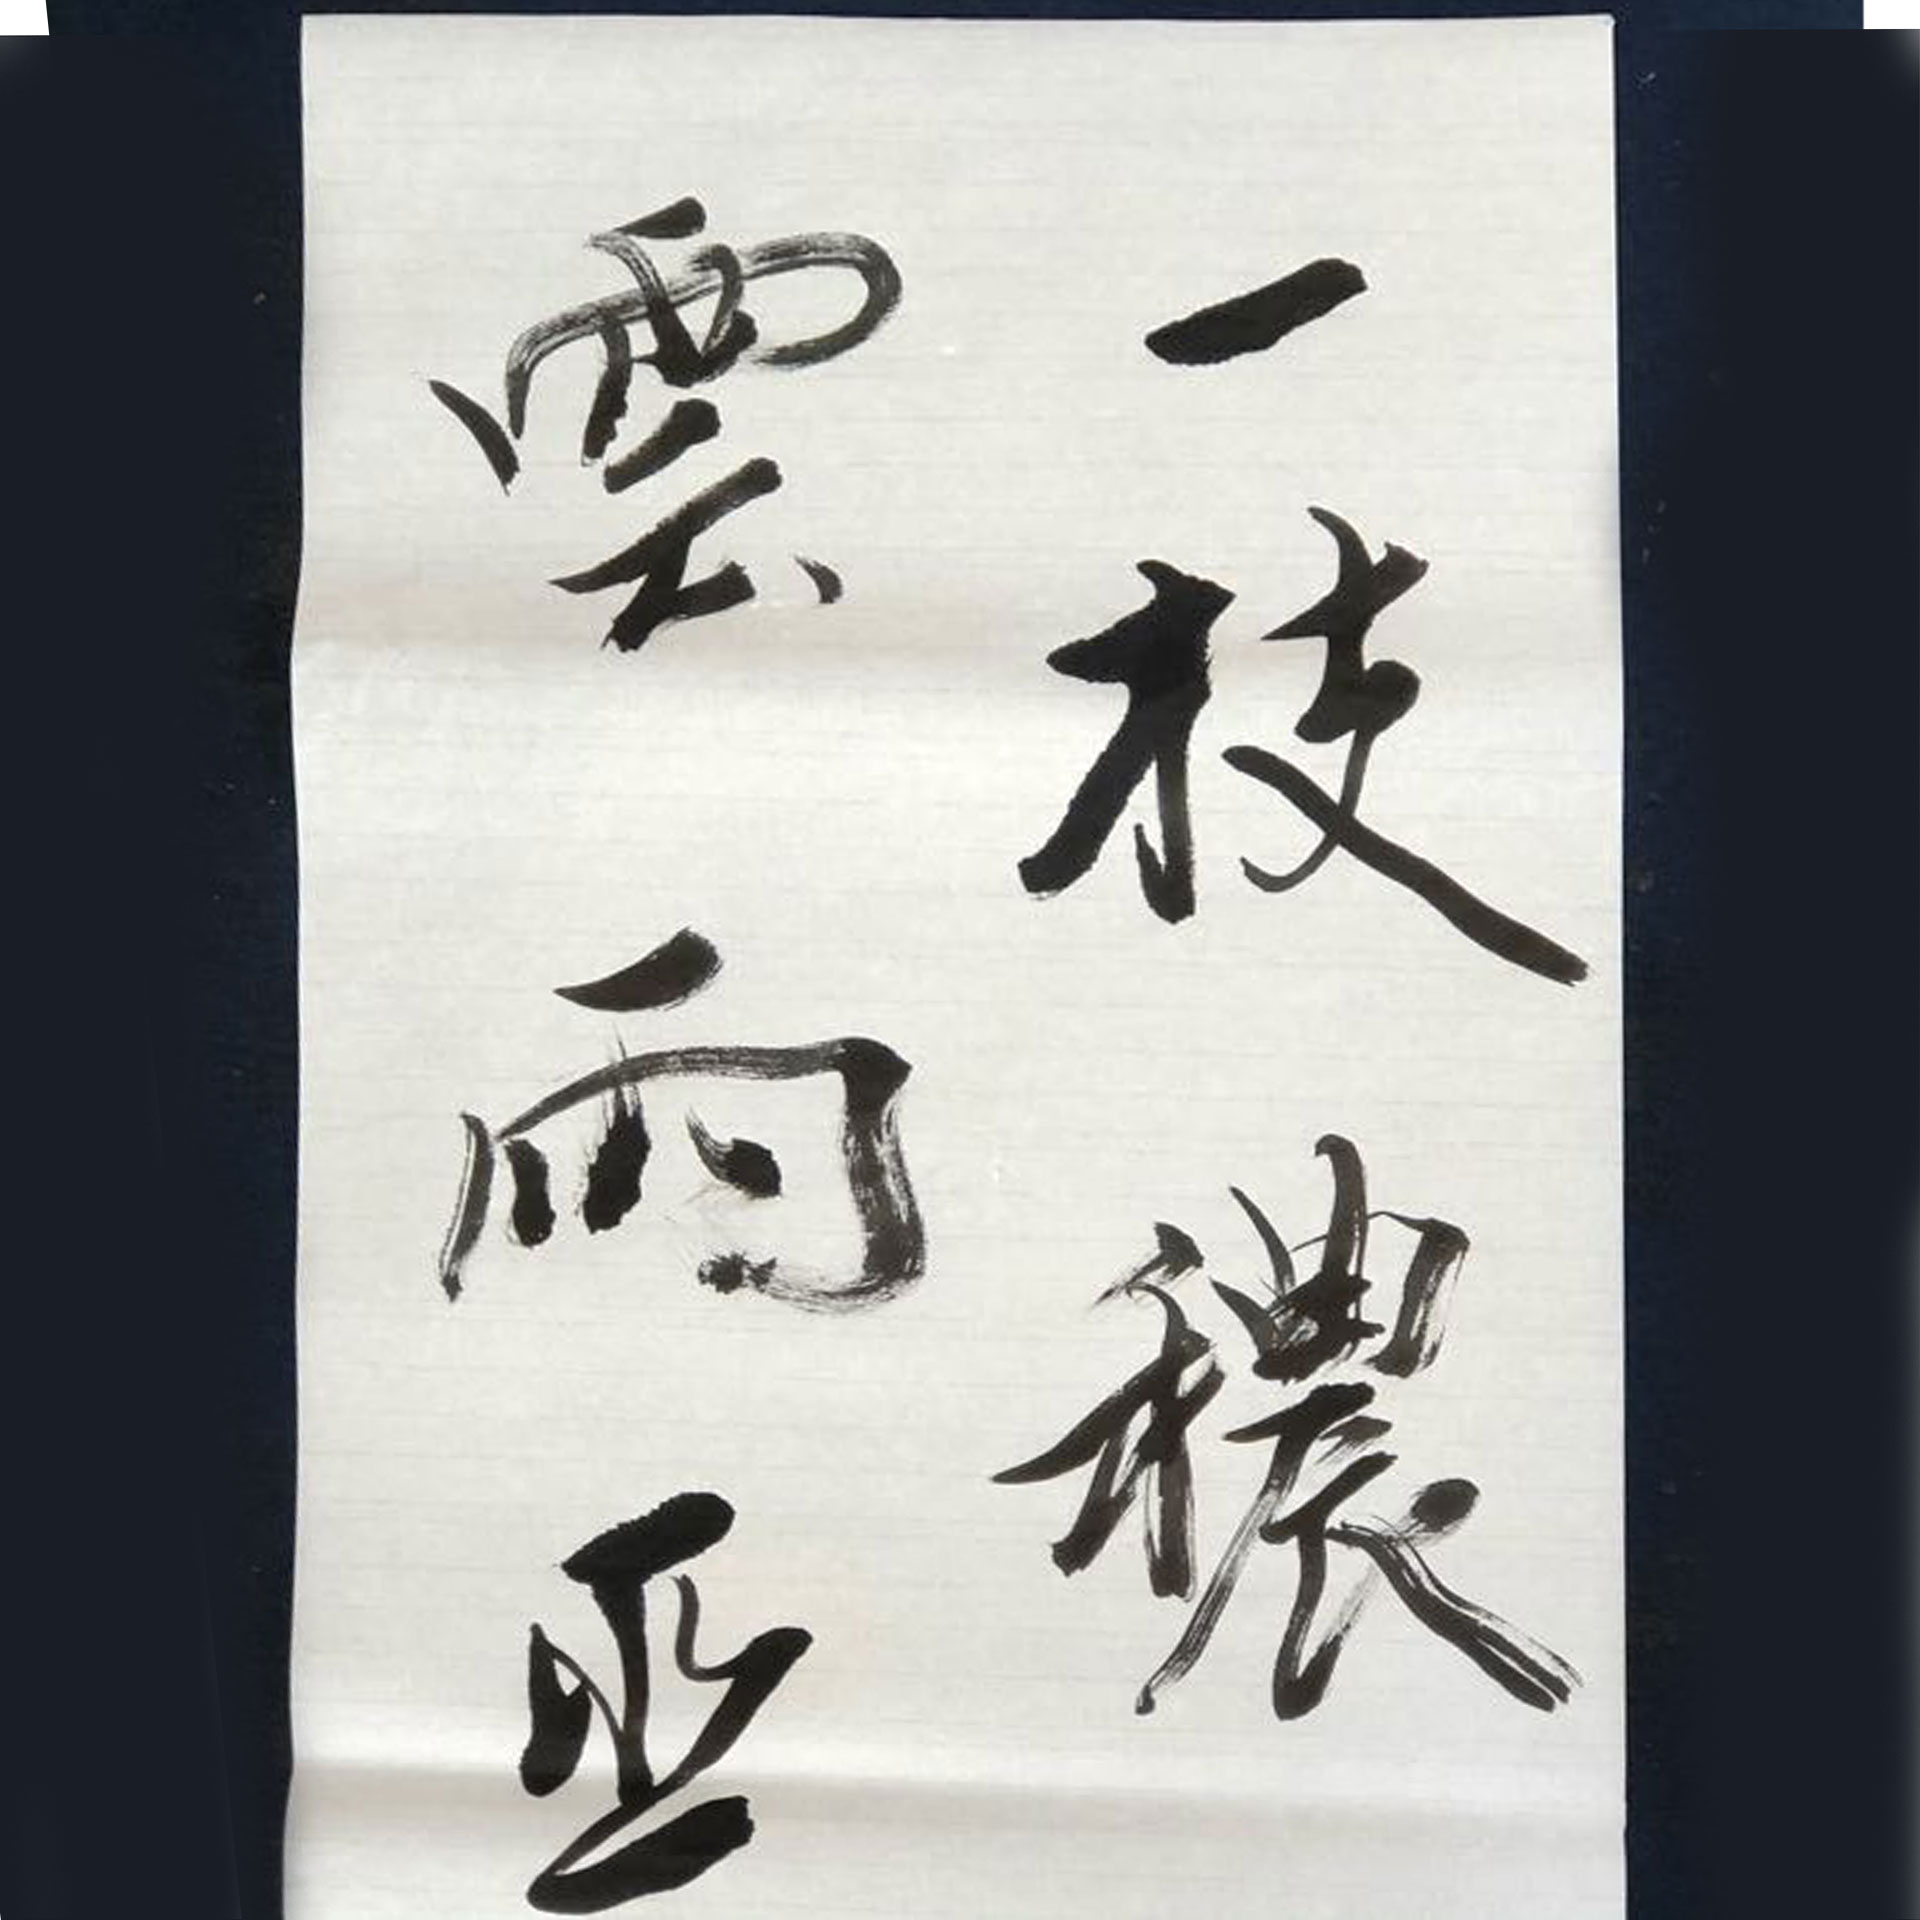 一枝穠
雲雨巫